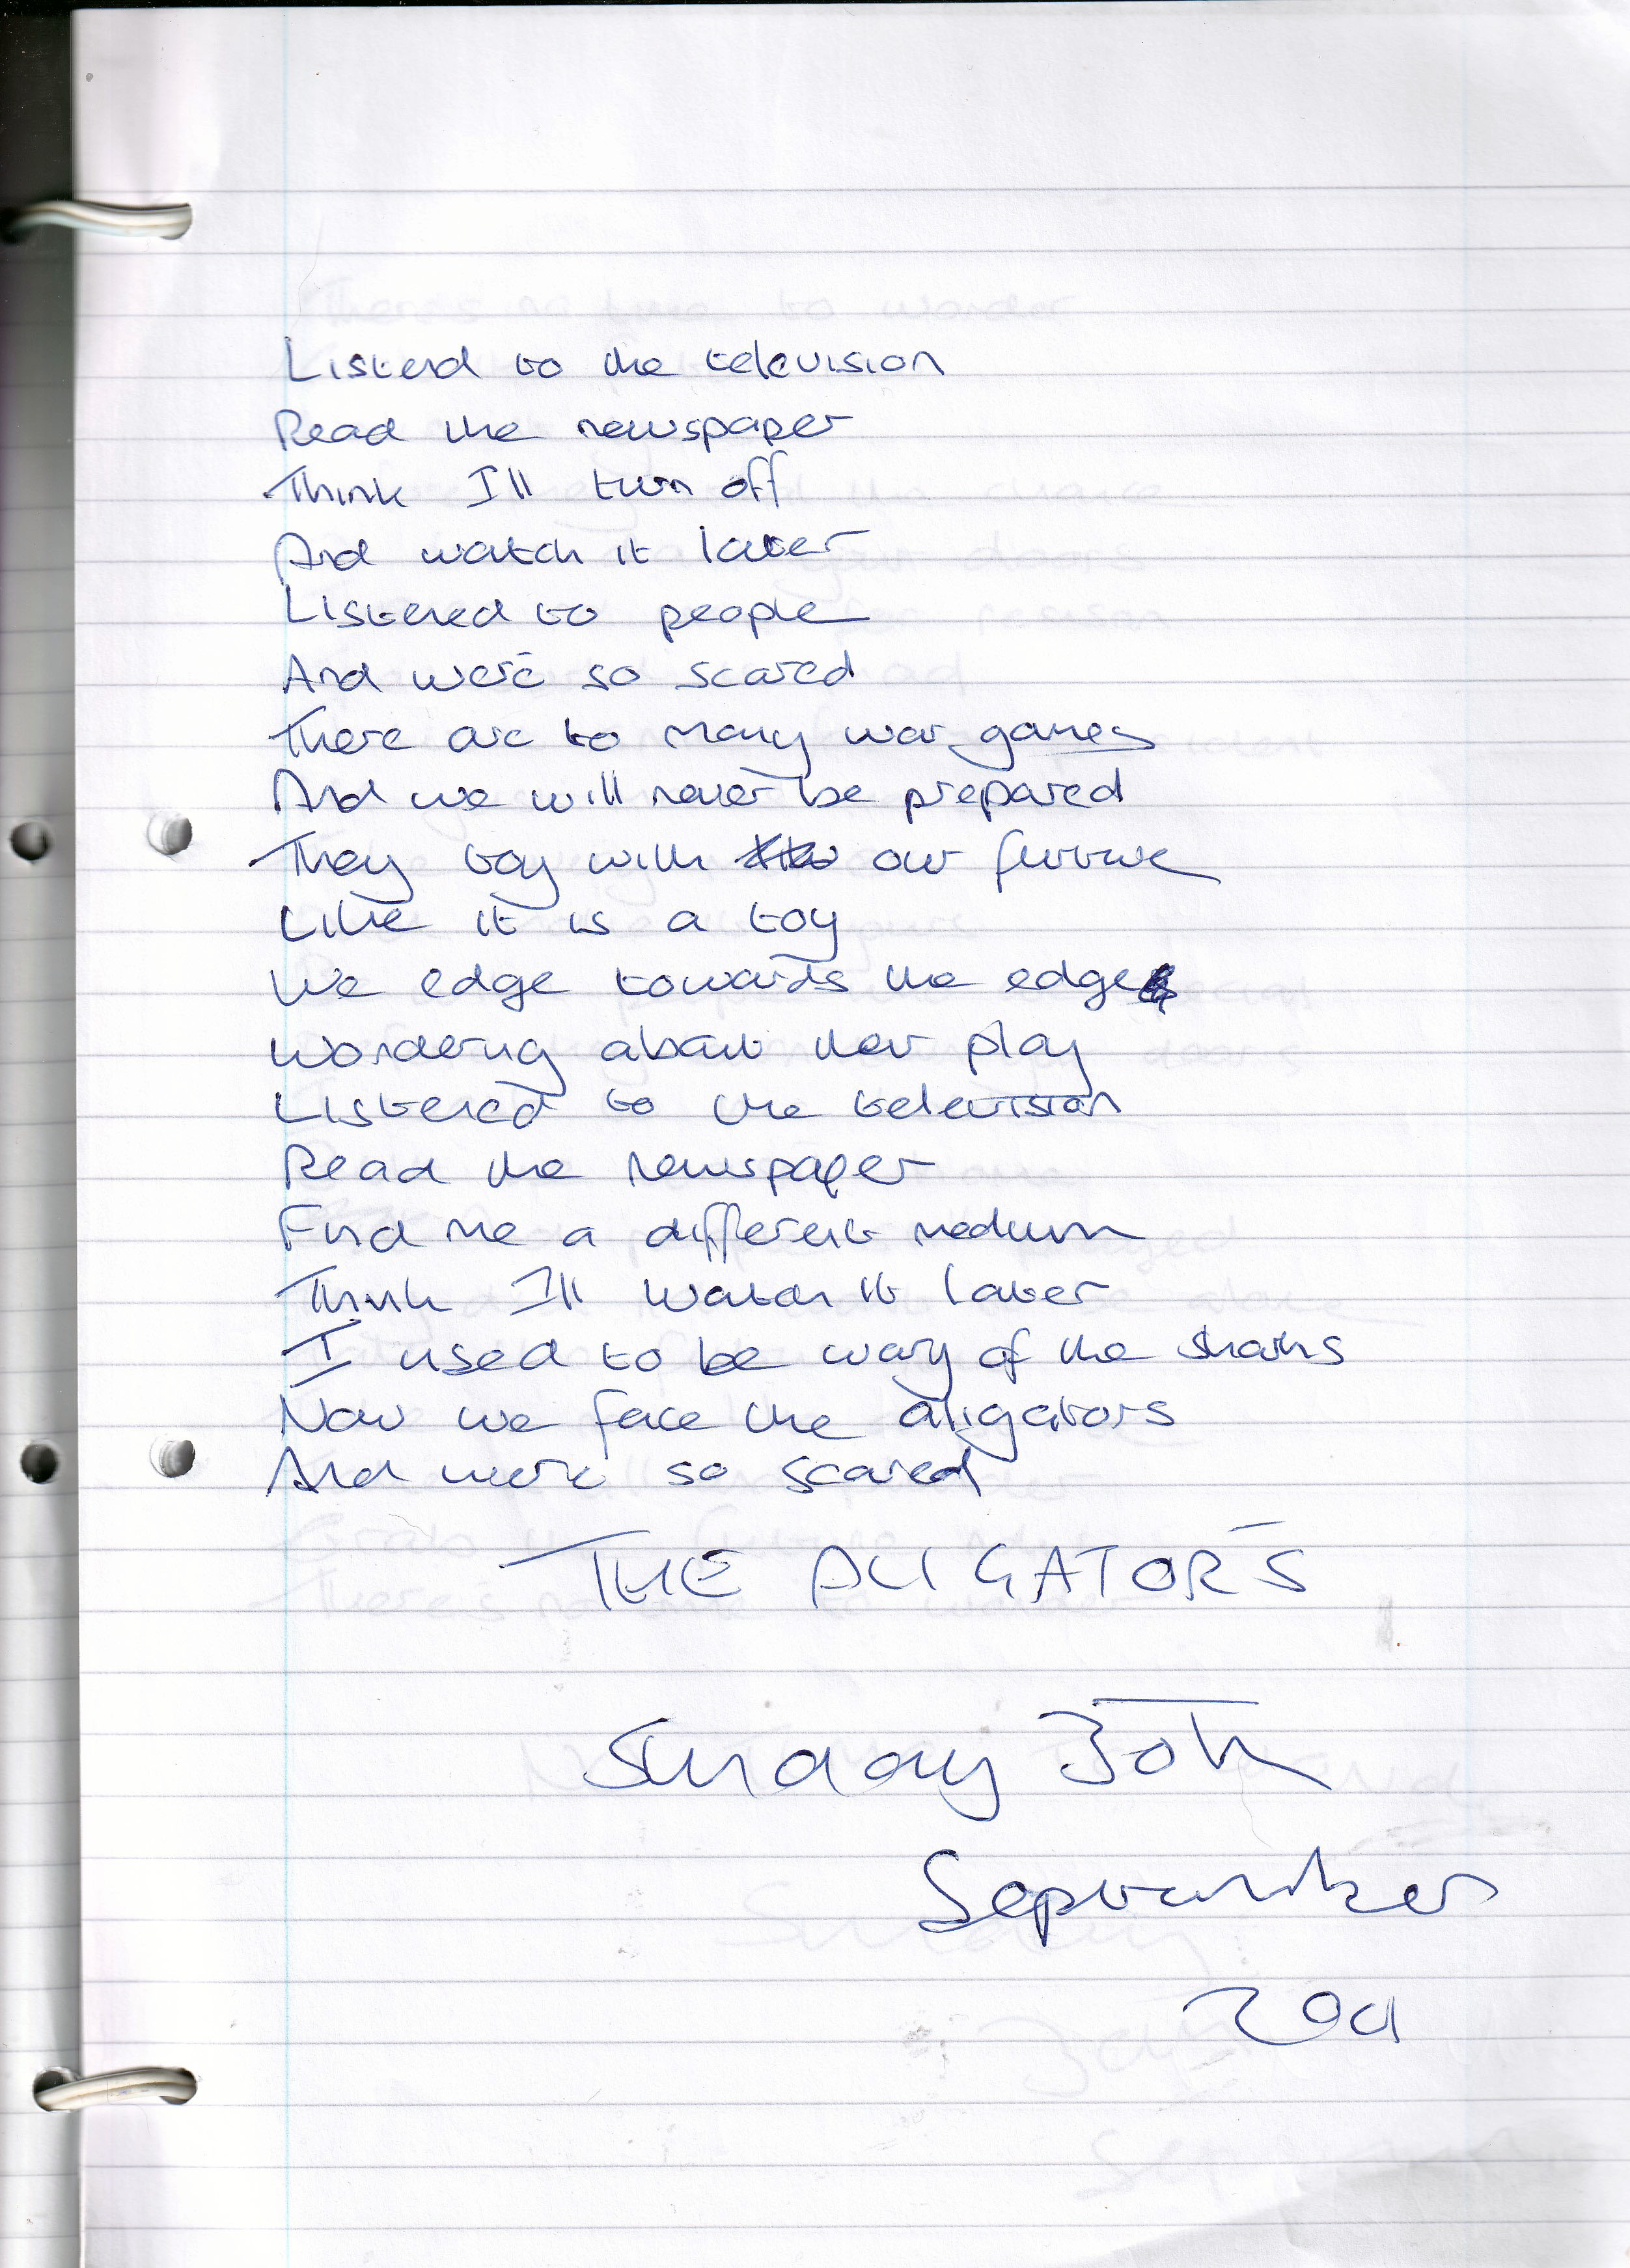 Listend to the television
Read the newspaper
Think I'll turn off
And watch it later
Listered to people
And we're so scared
There are to many war games
And we will never be prepared
They toy with our future
Like it is a toy
We edge towards the edge
Wondering about their play
Listered to the television
Read the newspaper
Find me a different medium
Think I'll watch it later
I used to be wary of the sharks
Now we face the aligators
And we're so scared
THE ALIGATORS
Sunday 30th
September
2001